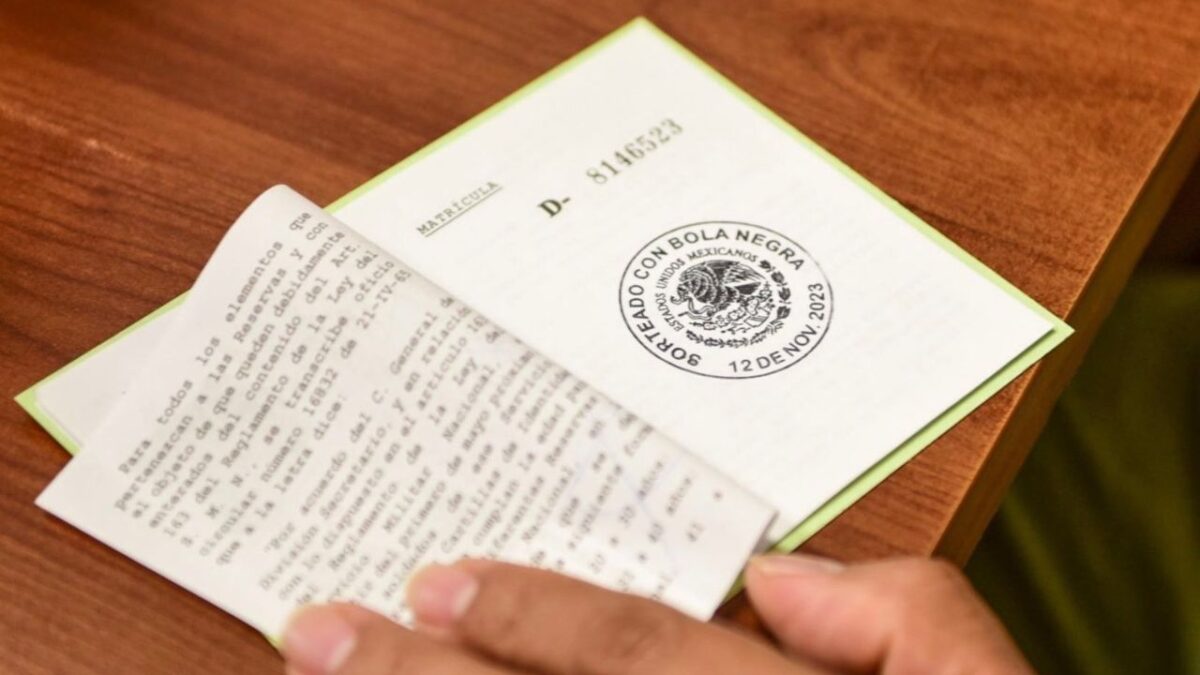 Para todos los elementos que
pertenezcan a las Reservas y con
el objeto de que queden debidamente
enterados del contenido del Art.
163 del Reglamento de la Ley del
S. M. N., se transcribe oficio
Circular número 16832 de 21-IV-65
que a la letra dice:
"Por acuerdo del C. General de
División Secretario, y en relación
con lo dispuesto en el artículo
del Reglamento de la Ley de
Servicio Militar Nacional,
tir del primero de mayo próximo
soldados de ese Servicio
Cartillas de Identi
cumplan la edad pa
Reservas
Nacional
que se
MATRÍCULA
D- 8146523
SORTEADO CON BOLA NEGRA
ESTADOS UNIDOS MEXICANOS
12 DE NOV. 2023